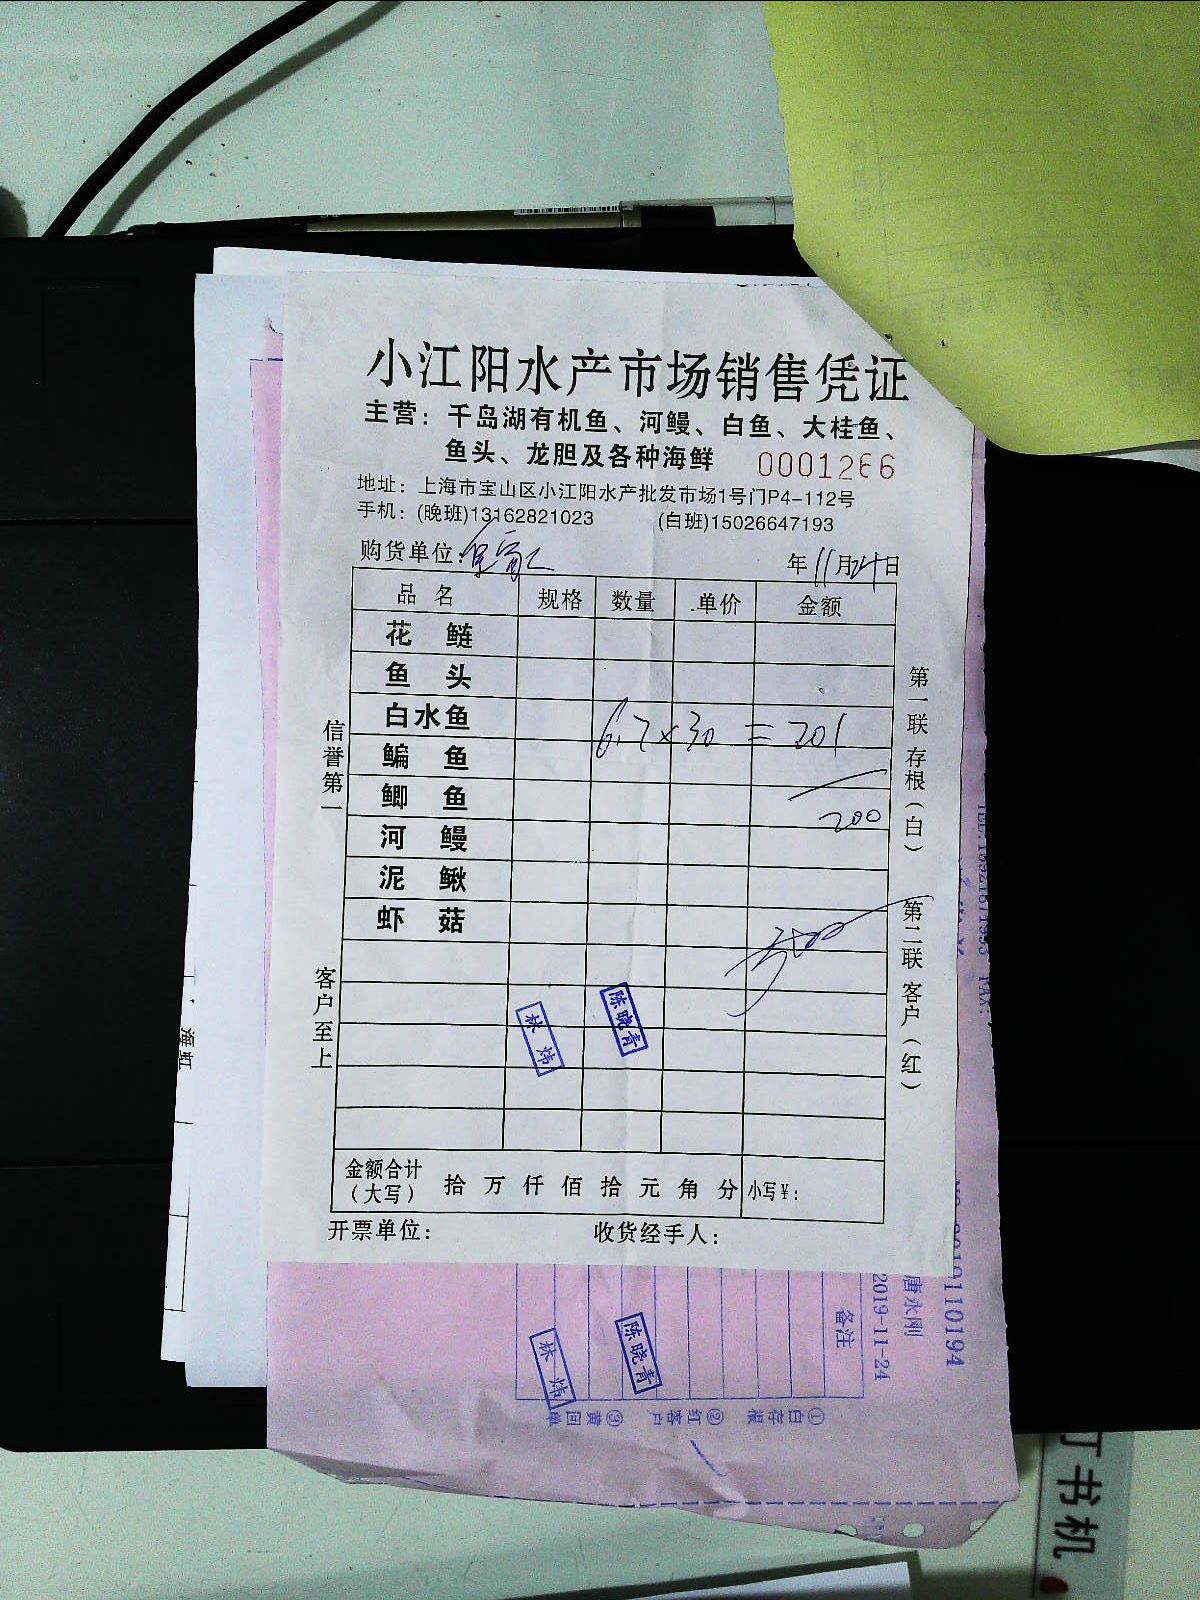 小江阳水产市场销售凭证
主营：千岛湖有机鱼、河鳗、白鱼、大桂鱼、
鱼头、龙胆及各种海鲜 0001266
地址：上海市宝山区小江阳水产批发市场1号门P4-112号
手机：(晚班)13162821023 (白班)15026647193
购货单位： 年11月24日
品名 规格 数量 单价 金额
花鲢
鱼头
白水鱼 6.7×30=201
鳊鱼
鲫鱼 200
河鳗
泥鳅
虾菇
信誉第一
客户至上
第一联 存根（白）
第二联 客户（红）
林炜
陈晓青
金额合计（大写） 拾 万 仟 佰 拾 元 角 分 小写¥：
开票单位： 收货经手人：
海虹
唐永刚
2019-11-24
备注
林炜
陈晓青
①白存根 ②红客户 ③黄回单
订书机